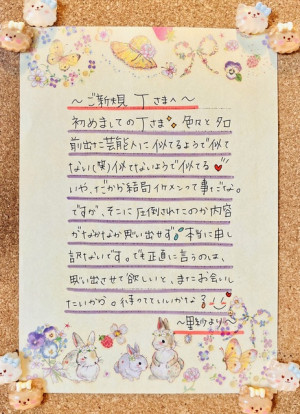 ～ご新規 Tさまへ～
初めましてのTさま 色々と名
前出た芸能人に似てるようで似て
ない(笑)似てないようで似てる
いや、だから結局イケメンって事でな。
ですが、そこに圧倒されてこのか内容
がなかなか思い出せず 本当に申し
訳ないです。で正直に言うのは、
思い出させて欲しいと、またお会いし
たいから。待っててていいかな?
～里紗より～